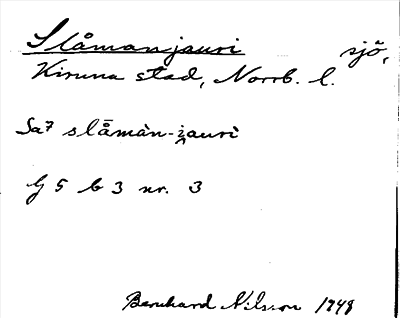 Slåmanjauri sjö,
Kiruna stad, Norrb. l.
Sa7 slå̄màn-jauri
G 5 b 3 nr. 3
Bernhard Nilsson 1948